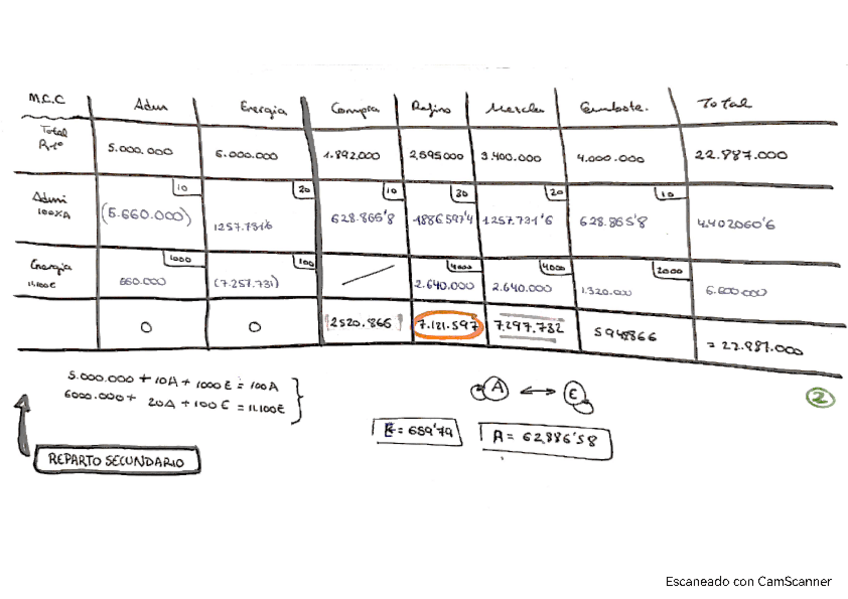 M.C.C Adm Energía Compra Refino Mezcla Embote. Total
Total
R-1º 5.000.000 6.000.000 1.892.000 2,595000 3.400.000 4.000.000 22.887.000
10 20 10 30 20 10
Admi
100XA (5.660.000) 1257.731'6 628.865'8 1886.597'4 1257.731'6 628.865'8 4.402060'6
1000 100 4000 4000 2000
Energía
11.100E 660.000 (7.257.731) 2.640.000 2.640.000 1.320.000 6.600.000
0 0 2520.866 7.121.597 7.297.732 5948866 = 22.887.000
5.000.000 + 10A + 1000E = 100A
6000.000 + 20A + 100E = 11.100E
A ↔ E
2
E = 659'79 A = 62.886'58
REPARTO SECUNDARIO
Escaneado con CamScanner